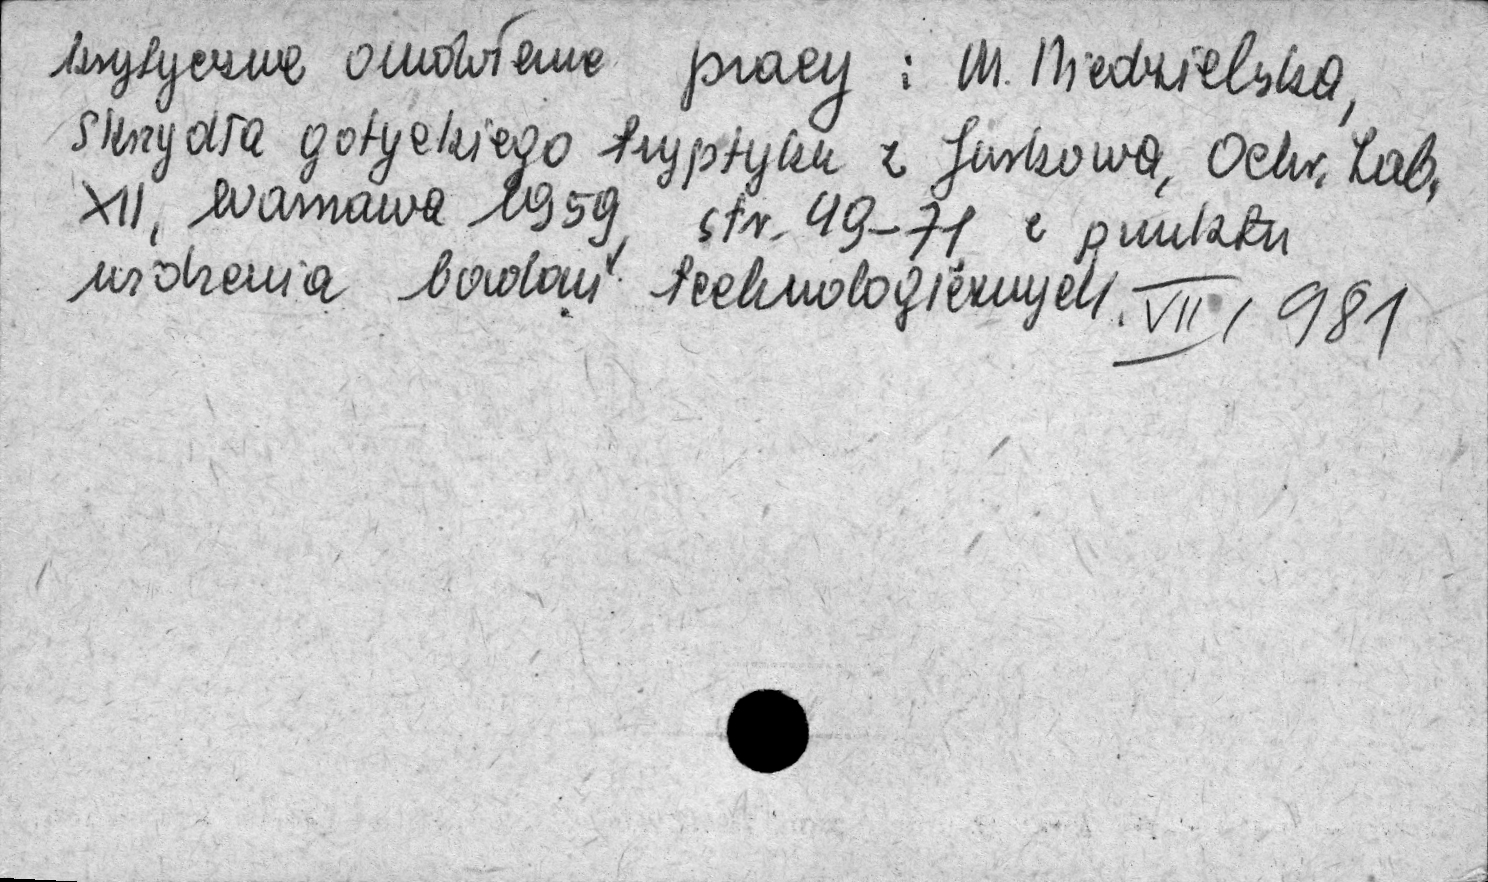 krytyczne omówienie pracy : M. Niedzielska,
Skrzydła gotyckiego tryptyku z Jurkowa, Ochr. Zab.
XII, Warszawa 1959, str. 49-71 z punktu
widzenia badań technologicznych. VII, 981